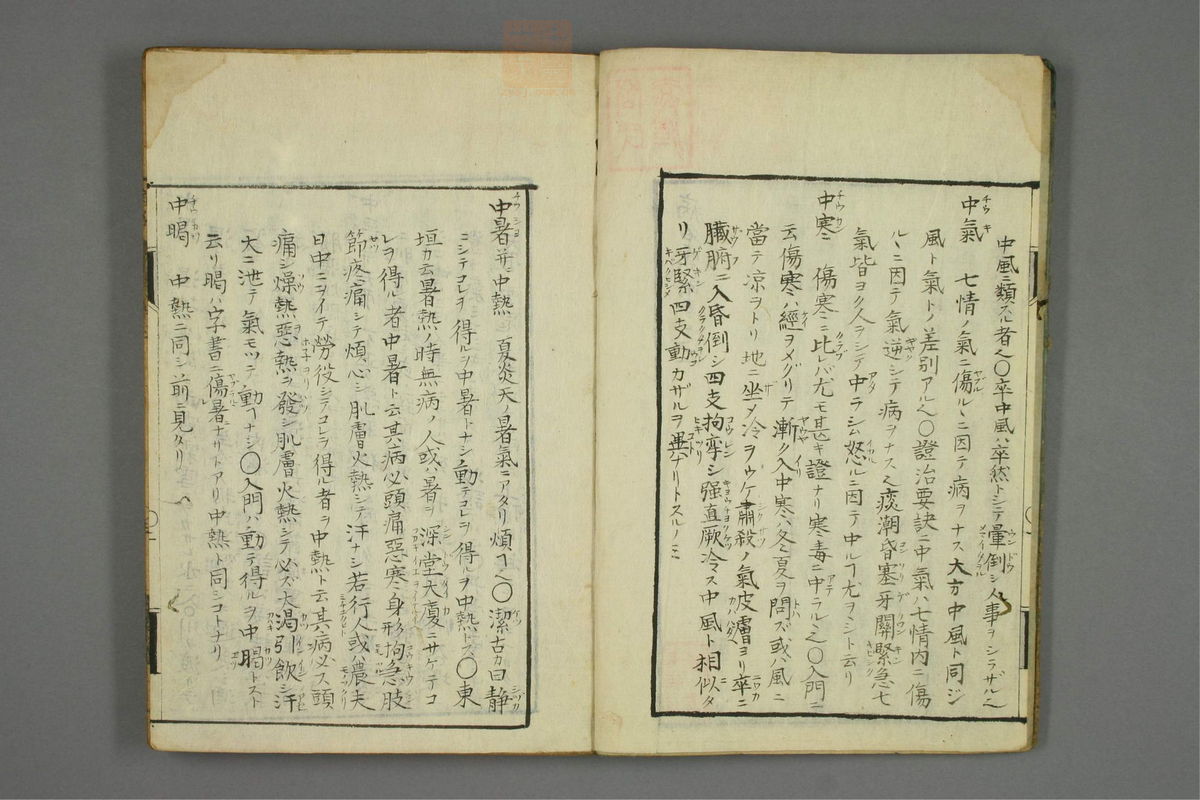 中風ニ類スル者也〇卒中風ハ卒然トシテ暈倒シ人事ヲシラザル也
中氣　七情ノ氣ニ傷ルヽニ因テ病ヲナス大方中風ト同ジ
風ト氣トノ差別アル也〇證治要訣ニ中氣ハ七情内ニ傷
ルヽニ因テ氣逆シテ病ヲナス也痰潮昏塞牙關緊急七
氣皆ヨク人ヲシテ中ラシム怒ルニ因テ中ルヿ尤ヲヽシト云リ
中寒　傷寒ニ比レバ尤モ甚キ證ナリ寒毒ニ中ラルヽ也〇入門ニ
云傷寒ハ經ヲメグリテ漸ク入中寒ハ冬夏ヲ問ズ或ハ風ニ
當テ凉ヲトリ地ニ坐メ冷ヲウケ肅殺ノ氣皮膚ヨリ卒ニ
臓腑ニ入昏倒シ四支拘攣シ强直厥冷ス中風ト相似タ
リ牙緊四支動カザルヲ異ナリトスルノミ
中暑并ニ中熱　夏炎天ノ暑氣ニアタリ煩フ也〇潔古カ曰静
ニシテコレヲ得ルヲ中暑トナシ動テコレヲ得ルヲ中熱トス〇東
垣カ云暑熱ノ時無病ノ人或ハ暑ヲ深堂大厦ニサケテコ
レヲ得ル者中暑ト云其病必頭痛惡寒身形拘急肢
節疼痛シテ煩心シ肌膚火熱シテ汗ナシ若行人或ハ農夫
日中ニヲイテ勞役シテコレヲ得ル者ヲ中熱ト云其病必ス頭
痛シ燥熱惡熱ヲ發シ肌膚火熱シテ必ズ大渇引飲シ汗
大ニ泄テ氣モツテ動ヿナシ〇入門ハ動テ得ルヲ中暍トスト
云リ暍ハ字書ニ傷暑ナリトアリ中熱ト同シコトナリ
中暍　中熱ニ同シ前ニ見タリ